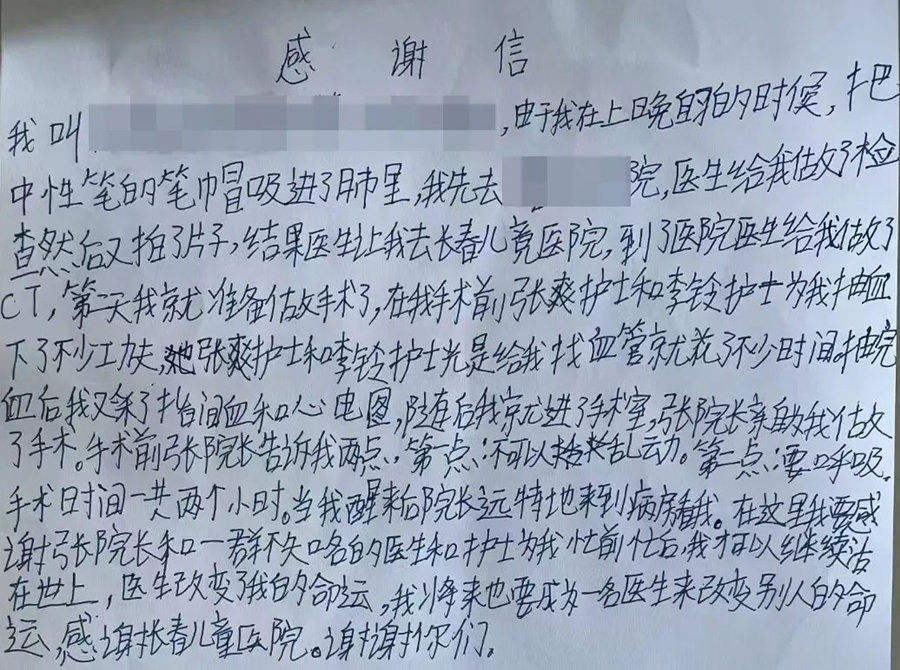 感谢信
我叫,由于我在上晚自习的时候,把
中性笔的笔帽吸进了肺里,我先去院,医生给我做了检
查然后又拍了片子,结果医生让我去长春儿童医院,到了医院医生给我做了
CT,第二天我就准备做手术了,在我手术前张爽护士和李铃护士为我抽血
下了不少工夫,张爽护士和李铃护士光是给我找血管就花了不少时间。抽完
血后我又采了指间血和心电图,随后我就进了手术室,张院长亲自为我做
了手术。手术前张院长告诉我两点,第一点:不可以乱动。第二点:要呼吸。
手术时间一共两个小时。当我醒来后院长还特地来到病房看我。在这里我要感
谢张院长和一群不知名的医生和护士为我忙前忙后,我才可以继续活
在世上,医生改变了我的命运,我将来也要成为一名医生来改变别人的命
运,感谢长春儿童医院。谢谢你们。